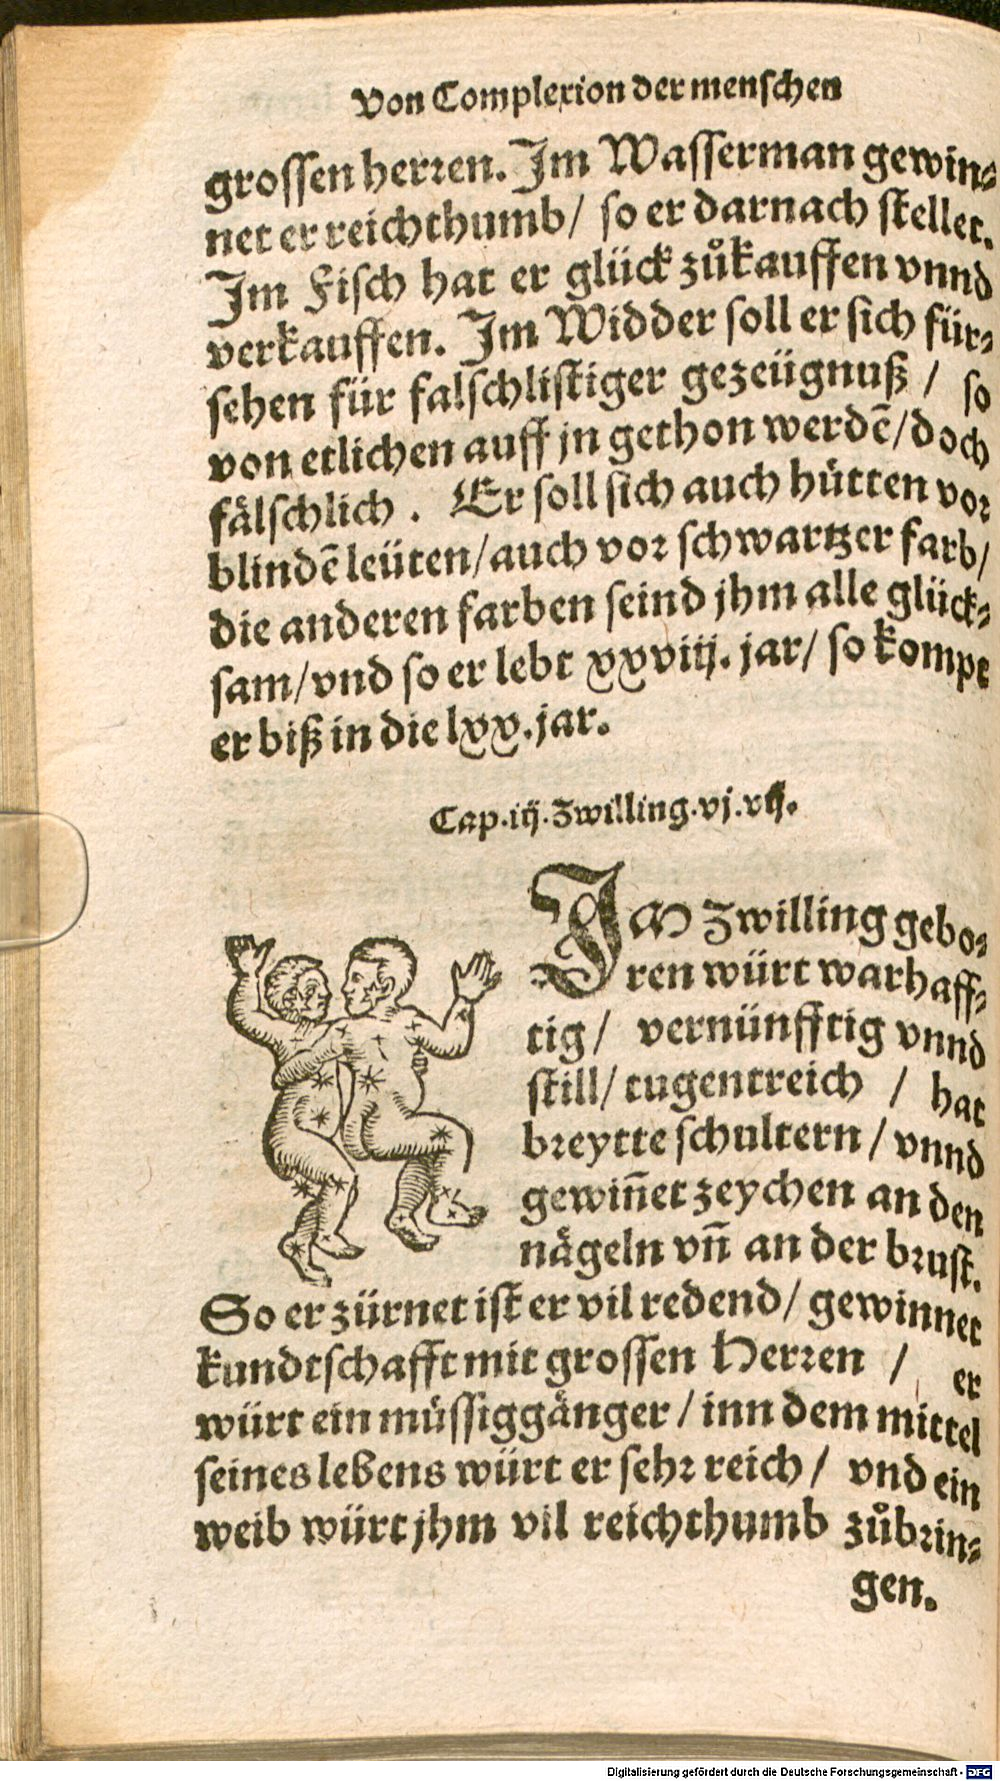 Von Complexion der menschen
grossen herꝛen. Jm Wasserman gewin⸗
net er reichthumb/ so er darnach stellet.
Jm Fisch hat er glück zůkauffen vnnd
verkauffen. Jm Widder soll er sich für⸗
sehen für falschlistiger gezeügnuß / so
von etlichen auff jn gethon werdē/doch
fälschlich . Er soll sich auch hütten voꝛ
blindē leüten/auch voꝛ schwartzer farb/
die anderen farben seind jhm alle glück⸗
sam/vnd so er lebt xxviij. jar/ so kompt
er biß in die lxx.jar.
Cap.iij.Zwilling.vj.vij.
JM Zwilling gebo⸗
ren würt warhaff⸗
tig/ vernünfftig vnnd
still/ tugentreich / hat
bꝛeytte schultern / vnnd
gewiñet zeychen an den
nägeln vñ an der bꝛust.
So er zürnet ist er vil redend/ gewinnet
kundtschafft mit grossen Herꝛen / er
würt ein müssiggänger / inn dem mittel
seines lebens würt er sehꝛ reich / vnd ein
weib würt jhm vil reichthumb zůbꝛin⸗
gen.
Digitalisierung gefördert durch die Deutsche Forschungsgemeinschaft - DFG